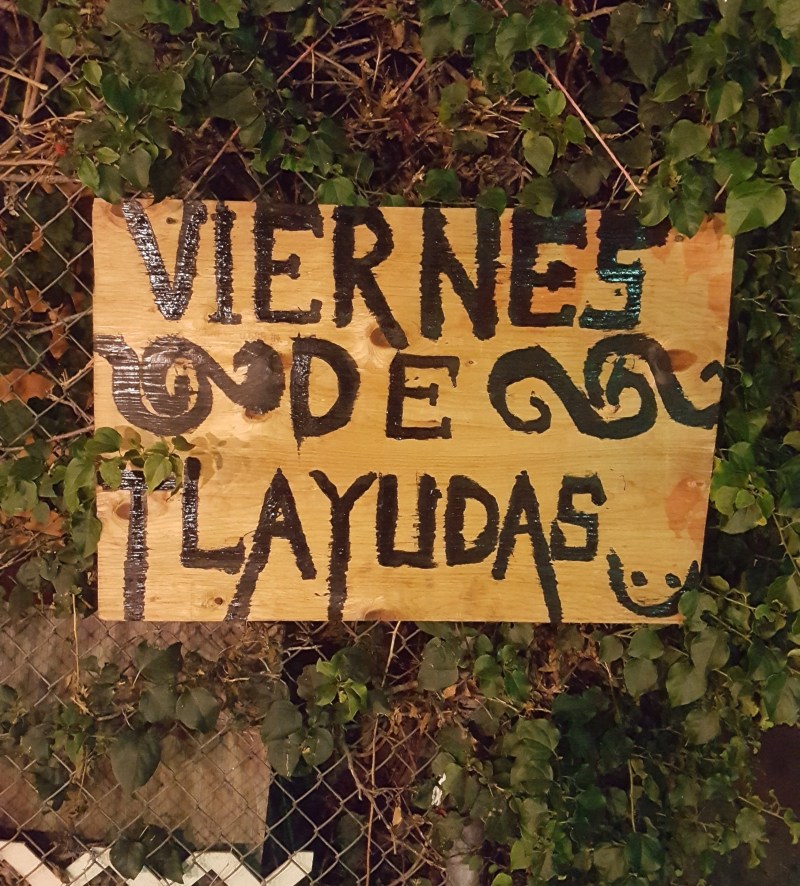 VIERNES
DE
TLAYUDAS